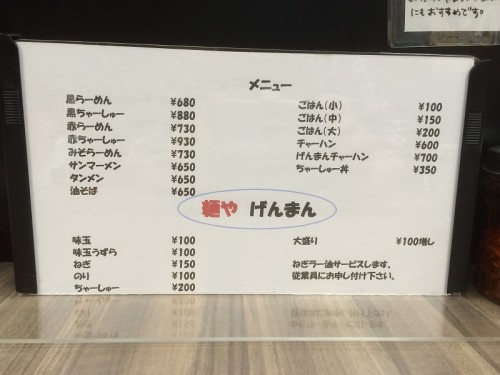 にもおすすめです。
メニュー
黒らーめん ¥680
黒ちゃーしゅー ¥880
赤らーめん ¥730
赤ちゃーしゅー ¥930
みそらーめん ¥730
サンマーメン ¥650
タンメン ¥650
油そば ¥650
ごはん(小) ¥100
ごはん(中) ¥150
ごはん(大) ¥200
チャーハン ¥600
げんまんチャーハン ¥700
ちゃーしゅー丼 ¥350
麺や げんまん
味玉 ¥100
味玉うずら ¥100
ねぎ ¥150
のり ¥100
ちゃーしゅー ¥200
大盛り ¥100増し
ねぎラー油サービスします。
従業員にお申し付け下さい。